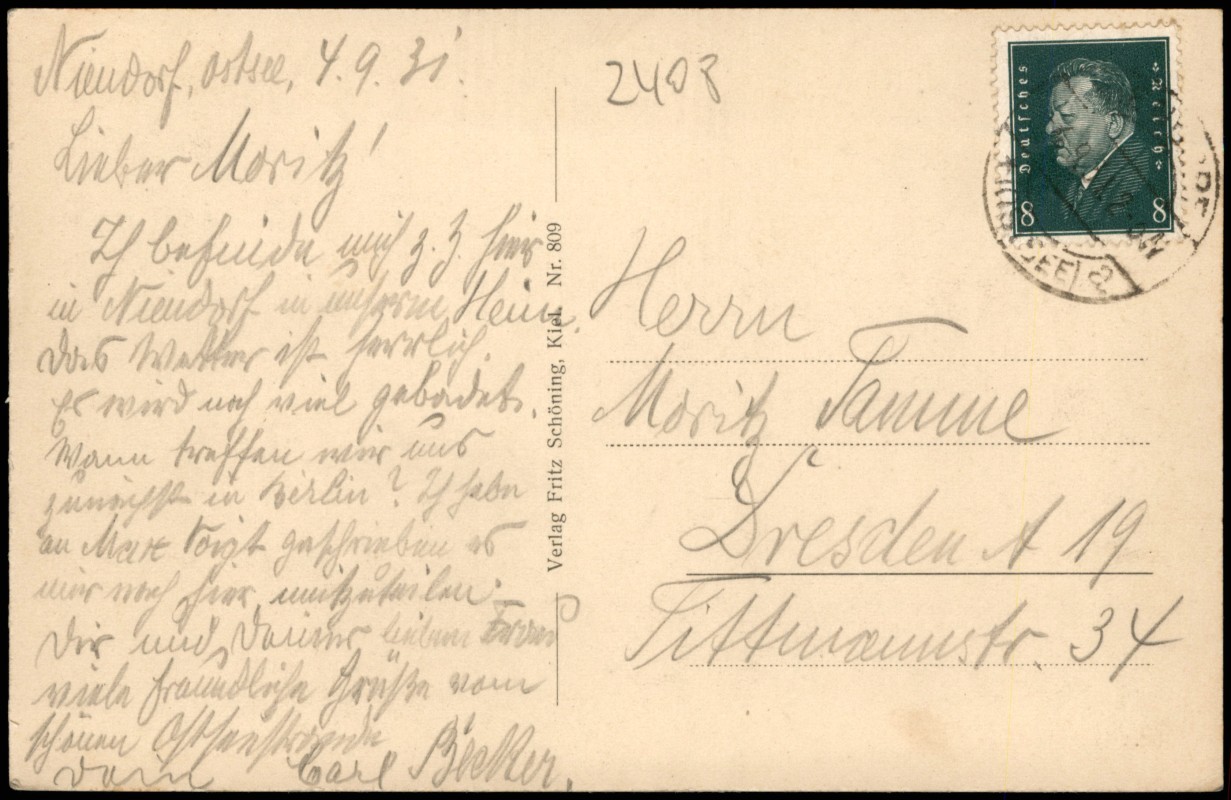 Niendorf, Ostsee, 4.9.31.
Lieber Moritz!
Ich befinde mich z. Z. hier
in Niendorf in unserm Heim.
Das Wetter ist herrlich.
Es wird noch viel gebadet.
Wann treffen wir uns
zunächst in Berlin? Ich habe
an Max Voigt geschrieben es
mir nach hier mitzuteilen.
Dir und Deiner lieben Frau
viele freundliche Grüße vom
schönen Ostseestrande
Dein Carl Becker.
Verlag Fritz Schöning, Kiel. Nr. 809
2408
Deutsches Reich
8 8
Herrn
Moritz Tamme
Dresden A 19
Tittmannstr. 34